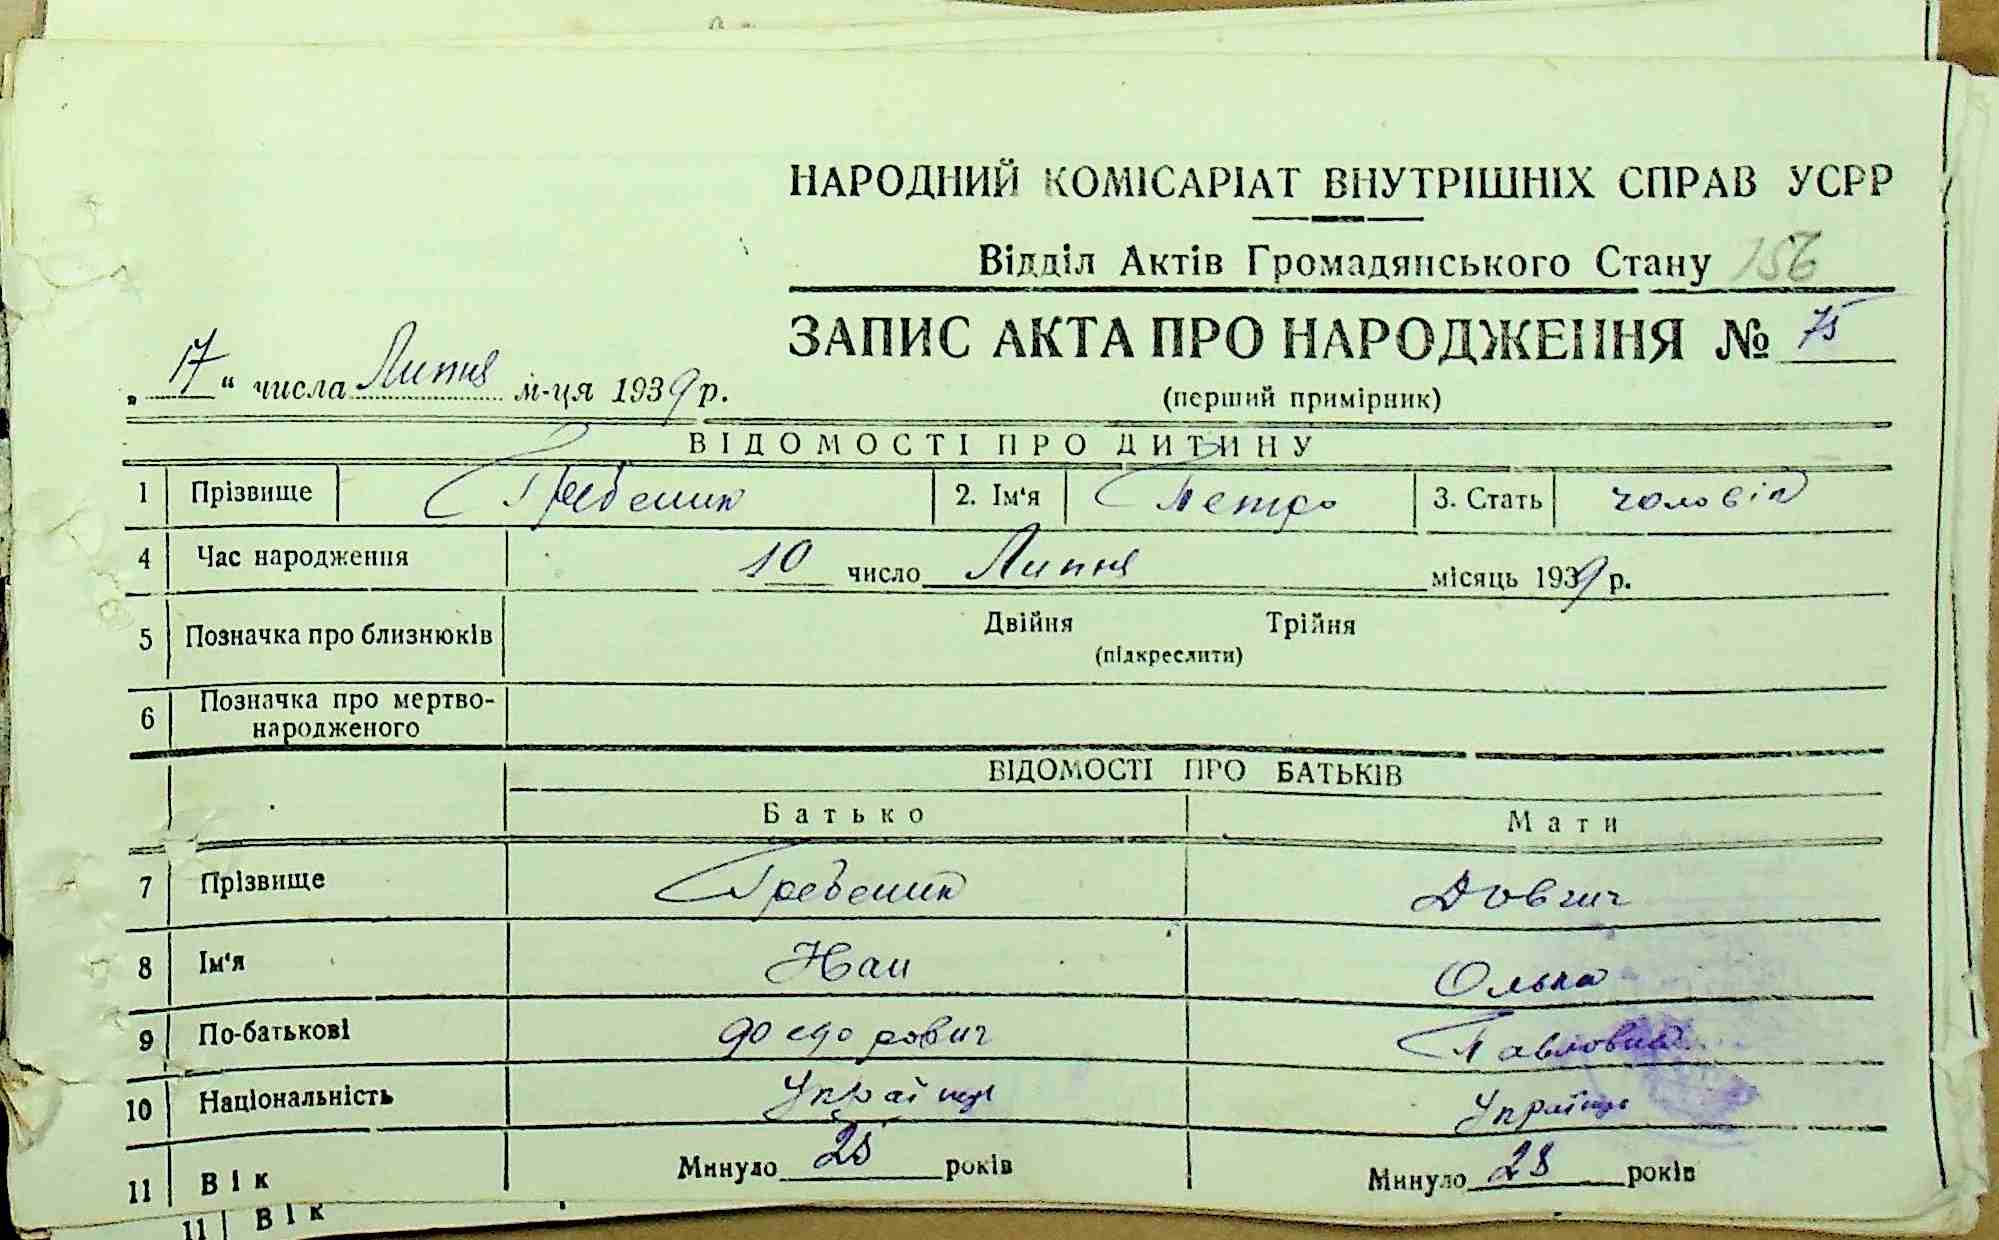 НАРОДНИЙ КОМІСАРІАТ ВНУТРІШНІХ СПРАВ УСРР
Відділ Актів Громадянського Стану 156
ЗАПИС АКТА ПРО НАРОДЖЕННЯ № 75
„17“ числа Липня м-ця 1939 р.
(перший примірник)
ВІДОМОСТІ ПРО ДИТИНУ
1 Прізвище Гребеник 2. Ім'я Петро 3. Стать чоловік
4 Час народження 10 число Липня місяць 1939 р.
5 Позначка про близнюків Двійня Трійня
(підкреслити)
6 Позначка про мертво-
народженого
ВІДОМОСТІ ПРО БАТЬКІВ
Батько Мати
7 Прізвище Гребеник Довгич
8 Ім'я Ольга
9 По-батькові Федорович
10 Національність
11 Вік Минуло років Минуло 28 років
11 Вік